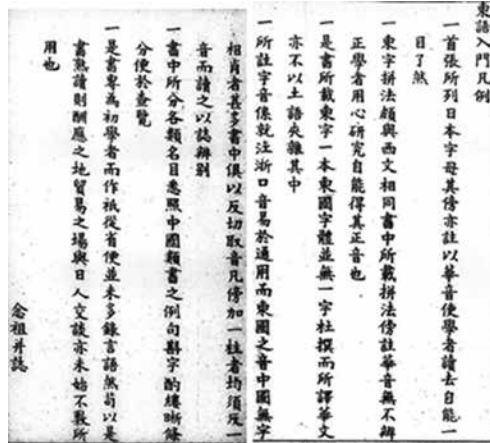 東語入門凡例
一首張所列日本字母其傍亦註以華音使學者讀去自能一
目了然
一東字拼法頗與西文相同書中所載拼法傍註華音無不辦
正學者用心研究自能得其正音也
一是書所載東字一本東國字體並無一字杜撰而所譯華文
亦不以土語夾雜其中
一所註字音係就注浙口音易於通用而東國之音中國無字
相肖者甚多書中俱以反切取音凡傍加一柱者均須反一
音而讀之以誌辦別
一書中所分各類名目悉照中國類書之例句斟字酌縷晰條
分便於查覽
一是書專為初學者而作祇從省便並未多錄言語然苟以是
書熟讀則酬應之地貿易之場與日人交談亦未始不敷所
用也
念祖并誌